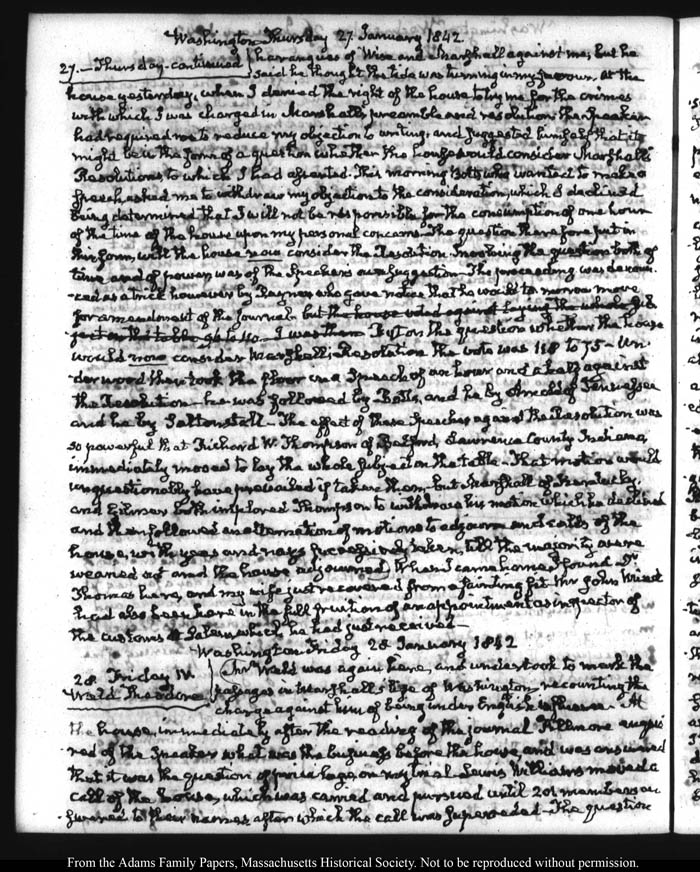 Washington Thursday 27. January 1842.
27.—Thursday-continued harangues of Wise and Marshall against me, but he
said he thought the tide was turning in my favour. At the
house yesterday, when I denied the right of the house to try me for the crimes
with which I was charged in Marshall's preamble and resolution the Speaker
had required me to reduce my objection to writing; and suggested himself that it
might be in the form of a question whether the house would consider Marshall's
Resolutions, to which I had assented. This morning Botts who wanted to make a
speech asked me to withdraw my objection to the consideration, which I declined
being determined that I will not be responsible for the consumption of one hour
of the time of the house upon my personal concerns. The question therefore put in
this form, will the house now consider the Resolution. Involving the question both of
time and of power, was of the Speakers own suggestion—The proceeding was denoun-
-ced as a trick however by Rayner who gave notice that he would to morrow move
for amendment of the Journal. but the house voted against laying the whole sub-
ject on the table 96 to 110. I was then But on the question whether the house
would now consider Marshall's Resolution the vote was 118 to 75—Un-
derwood then took the floor in a Speech of an hour and a half against
the Resolution—he was followed by Botts, and he by Arnold of Tennessee
and he by Saltonstall—The effect of these Speeches against the Resolution was
so powerful that Richard W. Thompson of Bedford, Lawrence County Indiana,
immediately moved to lay the whole subject on the table. That motion would
unquestionably have prevailed if taken then, but Marshall of Kentucky,
and Gilmer both implored Thompson to withdraw his motion which he declined
and then followed an alternation of motions to adjourn and calls of the
house, with yeas and nays successively taken, till the majority were
wearied out and the house adjourned. When I came home I found Dr
Thomas here, and my wife just recovered from a fainting fit. Mr John Wiest
had also been here in the full fruition of an appointment as inspector of
the customs at Salem which he had just received—
Washington Friday 28 January 1842
28. Friday IV. Mr Weld was again here, and undertook to mark the
Weld Theodore passages in Marshall's life of Washington recounting the
charge against him of being under English influence. At
the house, immediately after the reading of the journal Fillmore enqui-
red of the Speaker what was the business before the house and was answered
that it was the question of privilege, on my trial. Lewis Williams moved a
call of the house, which was carried and pursued until 201 members an-
swered to their names, after which the call was superseded—The question
From the Adams Family Papers, Massachusetts Historical Society. Not to be reproduced without permission.